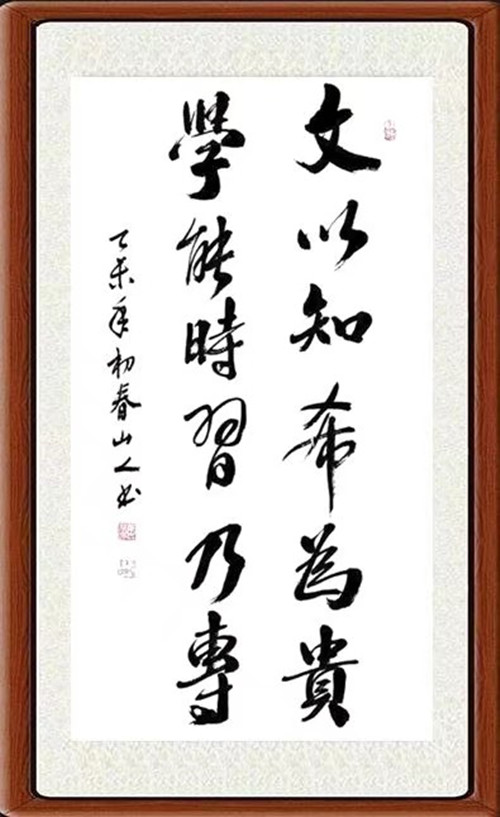 文以知希為貴
學能時習乃專
乙未年初春山人书